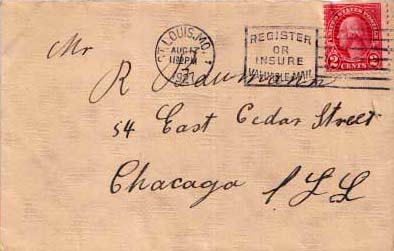 ST. LOUIS, MO. 1
AUG 17
PM
1927
REGISTER
OR
INSURE
VALUABLE MAIL
UNITED STATES POSTAGE
2 CENTS 2
Mr
R
54 East Cedar Street
Chacago ILL